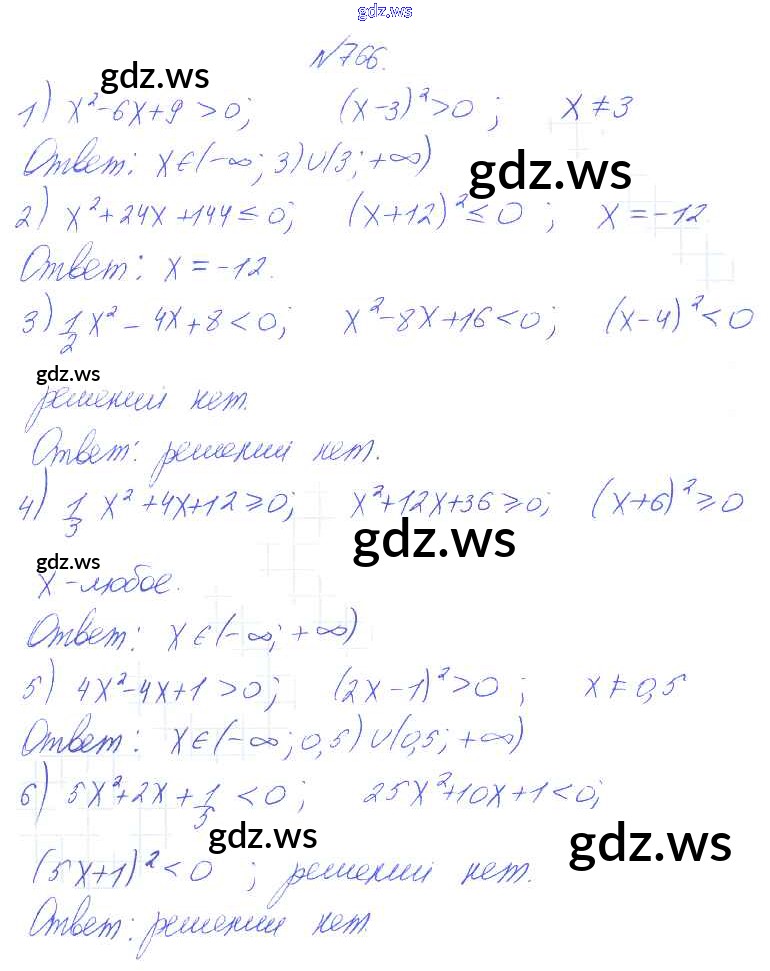 gdz.ws
№766.
gdz.ws
1) x²-6x+9>0; (x-3)²>0; x≠3
Ответ: x∈(-∞; 3)∪(3; +∞)
gdz.ws
2) x²+24x+144≤0; (x+12)²≤0; x=-12
Ответ: x=-12.
3) 1/2 x²-4x+8<0; x²-8x+16<0; (x-4)²<0
gdz.ws
решений нет.
Ответ: решений нет.
4) 1/3 x²+4x+12≥0; x²+12x+36≥0; (x+6)²≥0
gdz.ws
gdz.ws
x-любое.
Ответ: x∈(-∞; +∞)
5) 4x²-4x+1>0; (2x-1)²>0; x≠0,5
Ответ: x∈(-∞; 0,5)∪(0,5; +∞)
6) 5x²+2x+1/5<0; 25x²+10x+1<0;
gdz.ws
gdz.ws
(5x+1)²<0; решений нет.
Ответ: решений нет.